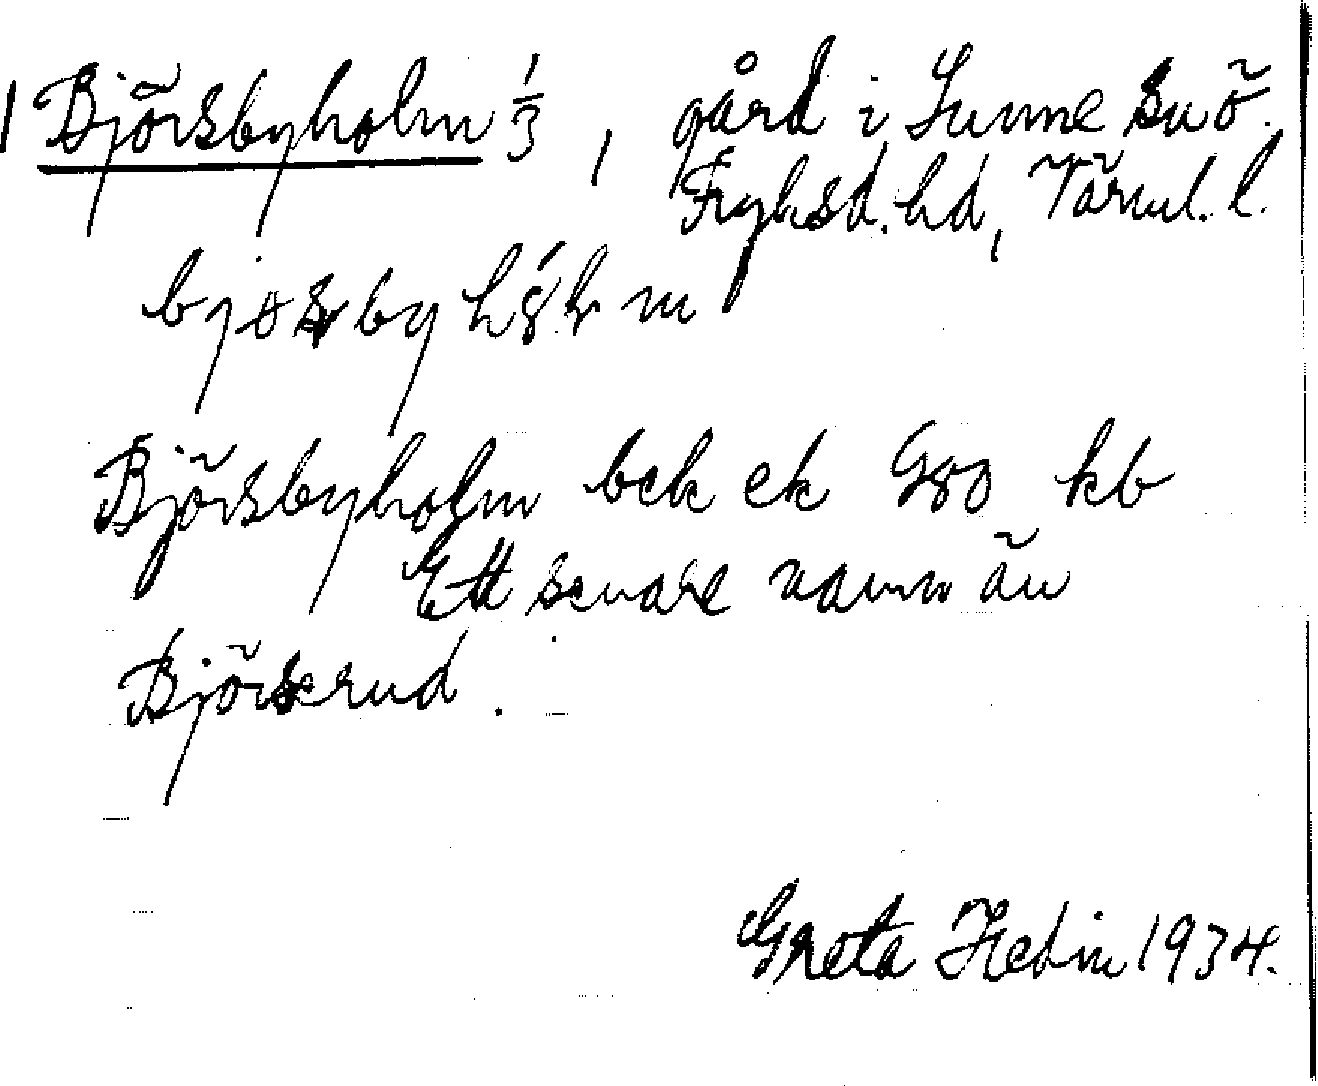 1 Björsbyholm 1/3, gård i Sunne sn ö.
Fryksd. hd, Värml. l.
Björsbyholm bek ek G80 kb
Ett senare namn än
Björserud.
Greta Hedin 1934.